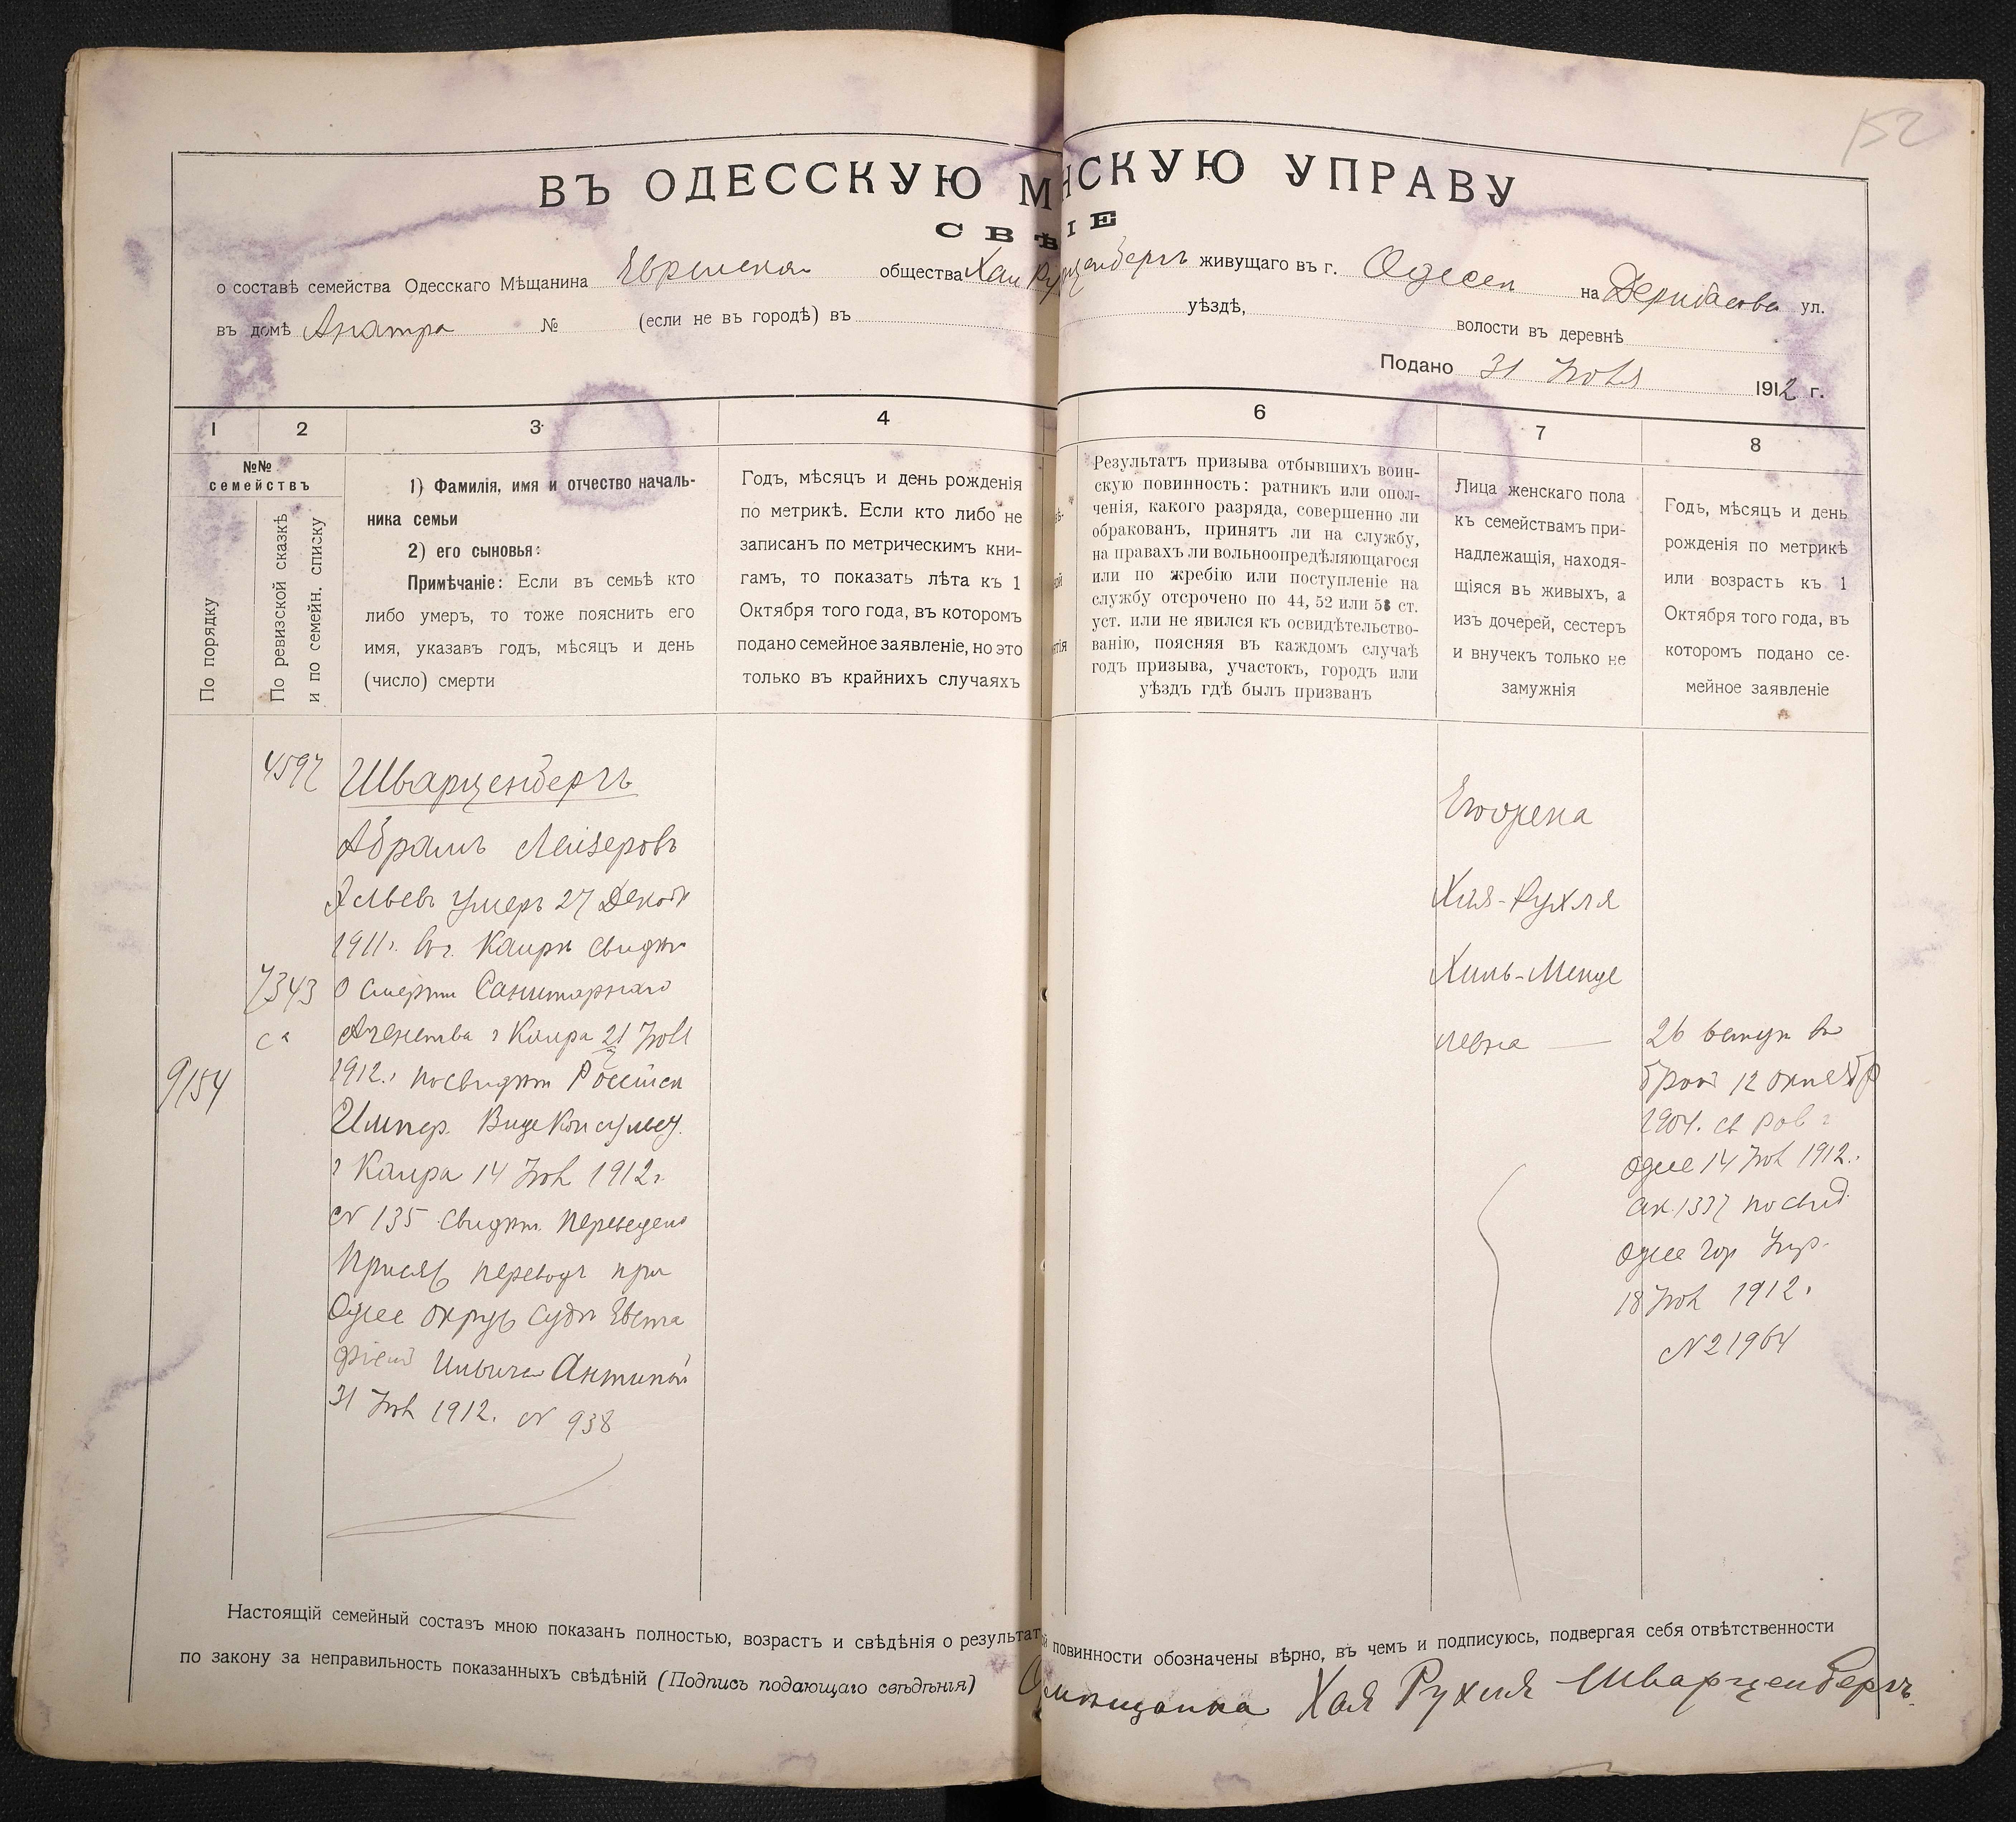 152
ВЪ ОДЕССКУЮ М НСКУЮ УПРАВУ
СВѢ ІЕ
о составѣ семейства Одесскаго Мѣщанина Еврейска общества Хаи Ру ценбергъ живущаго въ г. Одессѣ на Дерибасова ул.
въ домѣ Анатра № (если не въ городѣ) въ уѣздѣ, волости въ деревнѣ
Подано 31 Іюля 1912 г.
1 2 3 4 6 7 8
№№
семействъ
По порядку
По ревизской сказкѣ
и по семейн. списку
1) Фамилія, имя и отчество началь-
ника семьи
2) его сыновья:
Примѣчаніе: Если въ семьѣ кто
либо умеръ, то тоже пояснить его
имя, указавъ годъ, мѣсяцъ и день
(число) смерти
Годъ, мѣсяцъ и день рожденія
по метрикѣ. Если кто либо не
записанъ по метрическимъ кни-
гамъ, то показать лѣта къ 1
Октября того года, въ которомъ
подано семейное заявленіе, но это
только въ крайнихъ случаяхъ
Результатъ призыва отбывшихъ воин-
скую повинность: ратникъ или опол-
ченія, какого разряда, совершенно ли
обракованъ, принятъ ли на службу,
на правахъ ли вольноопредѣляющагося
или по жребію или поступленіе на
службу отсрочено по 44, 52 или 53 ст.
уст. или не явился къ освидѣтельство-
ванію, поясняя въ каждомъ случаѣ
годъ призыва, участокъ, городъ или
уѣздъ гдѣ былъ призванъ
Лица женскаго пола
къ семействамъ при-
надлежащія, находя-
щіяся въ живыхъ, а
изъ дочерей, сестеръ
и внучекъ только не
замужнія
Годъ, мѣсяцъ и день
рожденія по метрикѣ
или возрастъ къ 1
Октября того года, въ
которомъ подано се-
мейное заявленіе
4597
Шварценбергъ
Абрамъ Лейзеровъ
умеръ 27 Декабр
1911 г. въ г. Каирѣ свидѣт
7343
о смерти Санитарнаго
Агенства г Каира 21 Іюл
9154
1912 г. по свидѣт Россійск
Импер. ВицеКонсульст.
г Каира 14 Іюл 1912 г
№ 135 свидѣт. переведено
Присяж переводч при
Одесс окруж судѣ Евста
фіем Ильичем Антипой
31 Іюл 1912. № 938
Его жена
Хая-Рухля
Хиль-Менде
левна
26 вступ въ
брак 12 октябр
1904. св Рав г
Одессы 14 Іюл 1912 г.
ак. 1337 по свид.
Одесс Гор Упр.
18 Іюл 1912.
№ 21964
Настоящій семейный составъ мною показанъ полностью, возрастъ и свѣдѣнія о результат й повинности обозначены вѣрно, въ чемъ и подписуюсь, подвергая себя отвѣтственности
по закону за неправильность показанныхъ свѣдѣній (Подпись подающаго свѣдѣнія) мѣщанка Хая Рухля Шварценбергъ